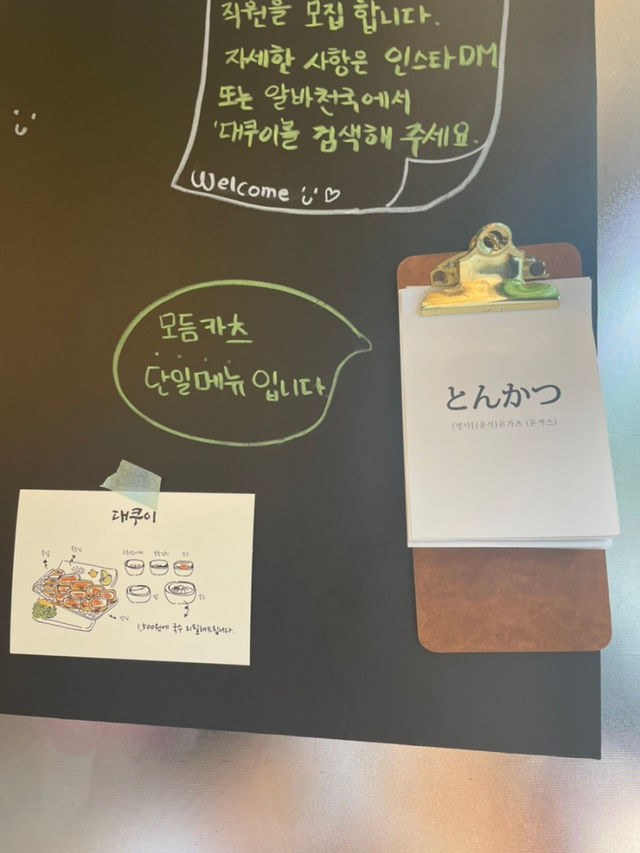 직원을 모집 합니다.
자세한 사항은 인스타DM
또는 알바천국에서
'대쿠이'를 검색해 주세요.
Welcome
모듬카츠
단일메뉴 입니다
とんかつ
[명사][음식]돈가츠 (돈까스)
대쿠이
소스
밥
안심
1,500원에 국수 리필해드립니다.